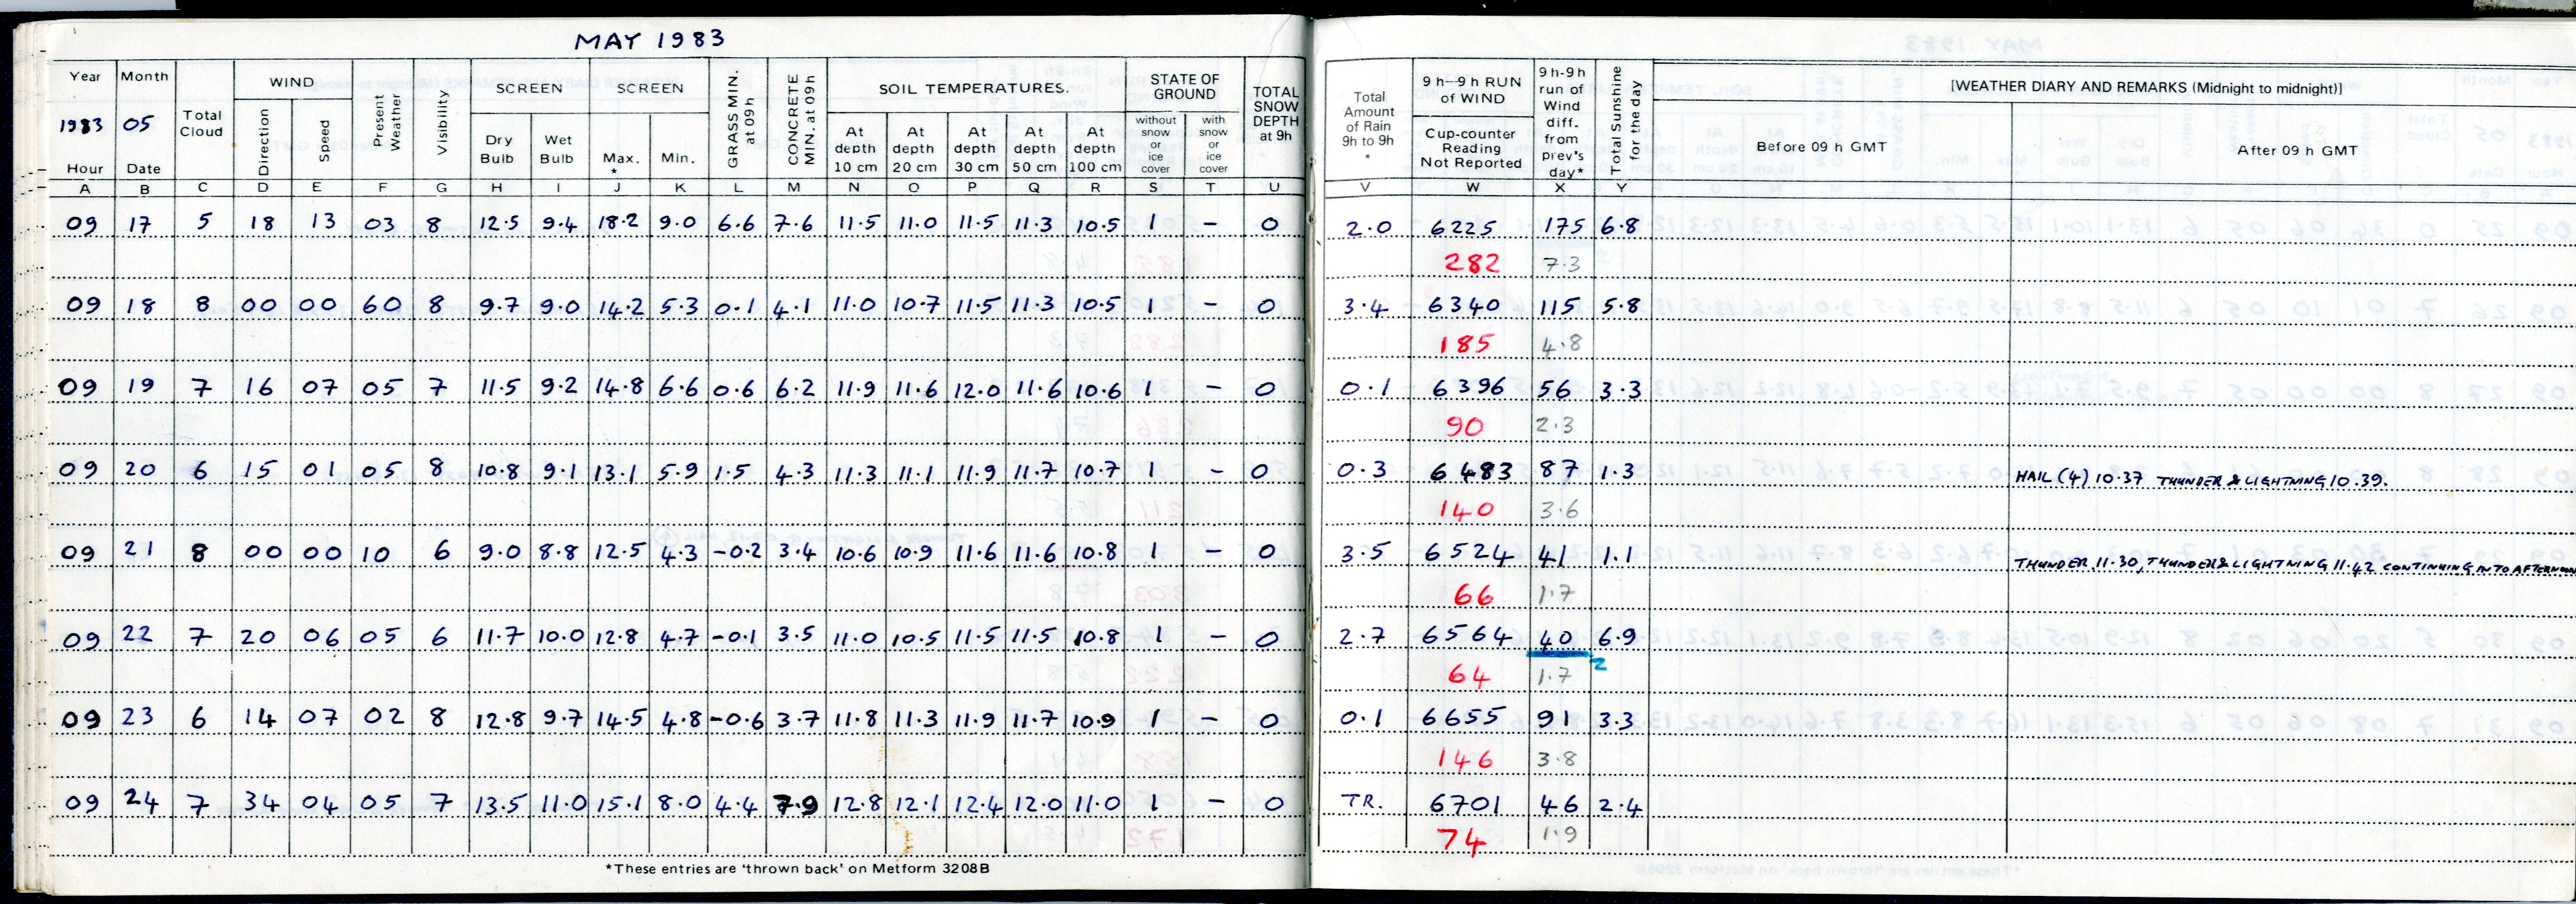 MAY 1983
Year Month Total Cloud WIND Present Weather Visibility SCREEN SCREEN GRASS MIN. at 09h CONCRETE MIN. at 09h SOIL TEMPERATURES. STATE OF GROUND TOTAL SNOW DEPTH at 9h Total Amount of Rain 9h to 9h * 9 h—9 h RUN of WIND 9 h-9 h run of Wind diff. from prev's day* Total Sunshine for the day [WEATHER DIARY AND REMARKS (Midnight to midnight)]
1983 05 Direction Speed Dry Bulb Wet Bulb Max. * Min. At depth 10 cm At depth 20 cm At depth 30 cm At depth 50 cm At depth 100 cm without snow or ice cover with snow or ice cover Cup-counter Reading Not Reported Before 09 h GMT After 09 h GMT
Hour Date
A B C D E F G H I J K L M N O P Q R S T U V W X Y
09 17 5 18 13 03 8 12.5 9.4 18.2 9.0 6.6 7.6 11.5 11.0 11.5 11.3 10.5 1 – 0 2.0 6225 175 6.8
282 7.3
09 18 8 00 00 60 8 9.7 9.0 14.2 5.3 0.1 4.1 11.0 10.7 11.5 11.3 10.5 1 – 0 3.4 6340 115 5.8
185 4.8
09 19 7 16 07 05 7 11.5 9.2 14.8 6.6 0.6 6.2 11.9 11.6 12.0 11.6 10.6 1 – 0 0.1 6396 56 3.3
90 2.3
09 20 6 15 01 05 8 10.8 9.1 13.1 5.9 1.5 4.3 11.3 11.1 11.9 11.7 10.7 1 – 0 0.3 6483 87 1.3 HAIL (4) 10.37 THUNDER & LIGHTNING 10.39.
140 3.6
09 21 8 00 00 10 6 9.0 8.8 12.5 4.3 -0.2 3.4 10.6 10.9 11.6 11.6 10.8 1 – 0 3.5 6524 41 1.1 THUNDER 11.30, THUNDER & LIGHTNING 11.42 CONTINUING INTO AFTERNOON
66 1.7
09 22 7 20 06 05 6 11.7 10.0 12.8 4.7 -0.1 3.5 11.0 10.5 11.5 11.5 10.8 1 – 0 2.7 6564 40 6.9
2
64 1.7
09 23 6 14 07 02 8 12.8 9.7 14.5 4.8 -0.6 3.7 11.8 11.3 11.9 11.7 10.9 1 – 0 0.1 6655 91 3.3
146 3.8
09 24 7 34 04 05 7 13.5 11.0 15.1 8.0 4.4 7.9 12.8 12.1 12.4 12.0 11.0 1 – 0 TR. 6701 46 2.4
74 1.9
*These entries are 'thrown back' on Metform 3208B